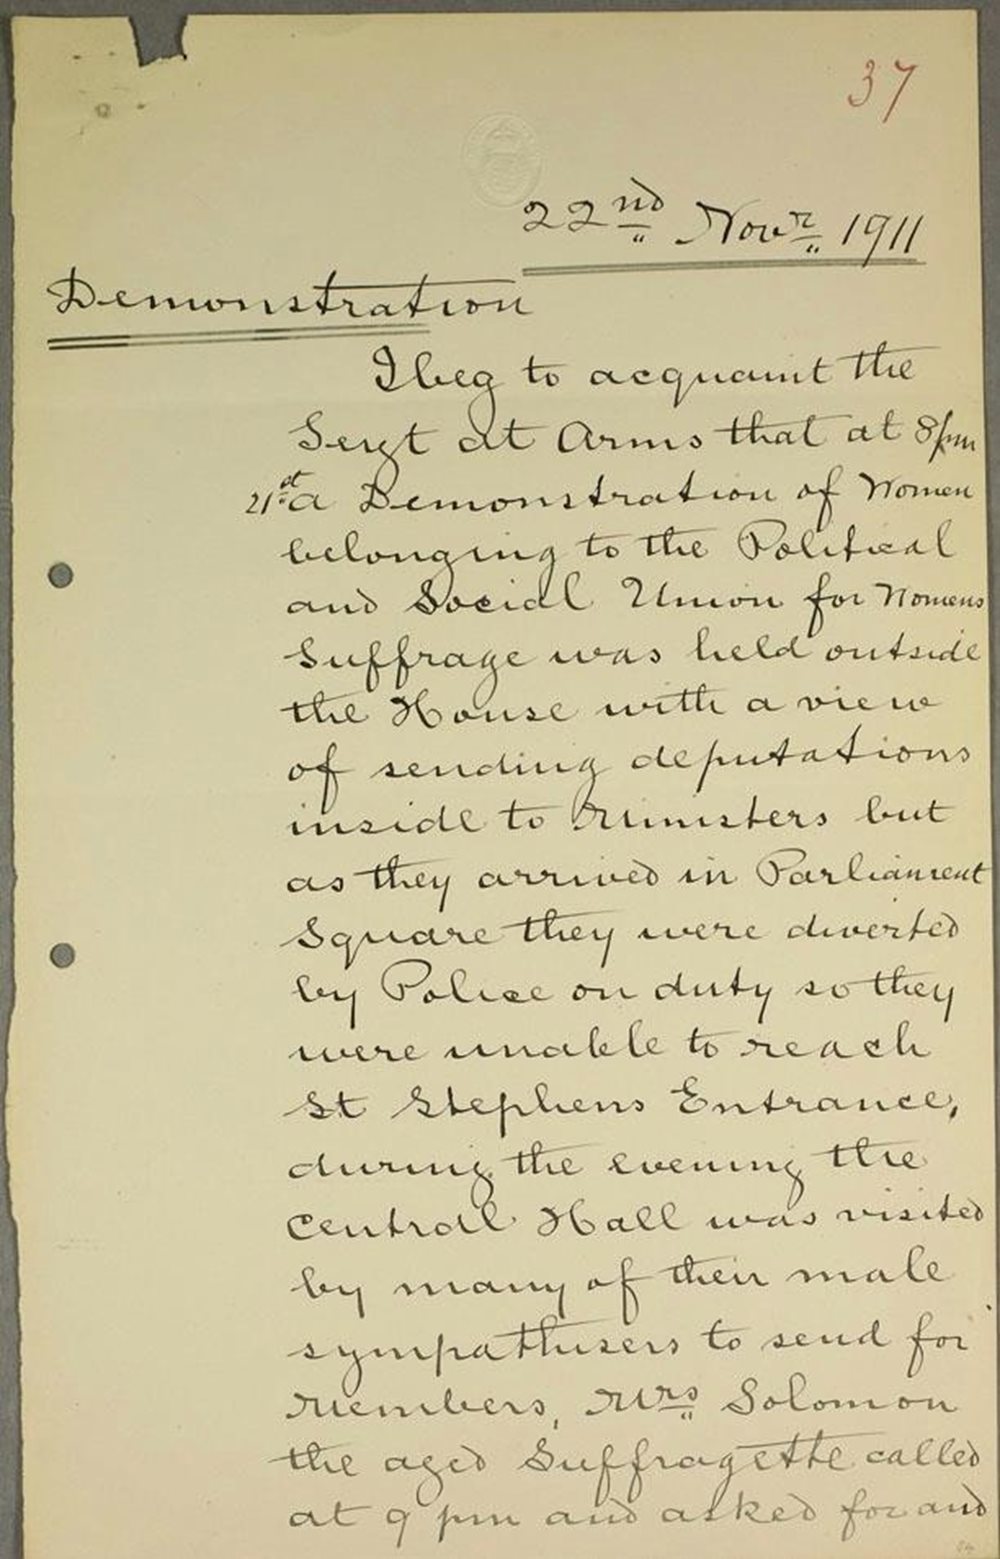 37
22nd Novr 1911
Demonstration
I beg to acquaint the
Sergt at Arms that at 8pm
21st a Demonstration of Women
belonging to the Political
and Social Union for Womens
Suffrage was held outside
the House with a view
of sending deputations
inside to Ministers but
as they arrived in Parliament
Square they were diverted
by Police on duty so they
were unable to reach
St Stephens Entrance,
during the evening the
Central Hall was visited
by many of their male
sympathisers to send for
Members, Mrs Solomon
the aged Suffragette called
at 9 pm and asked for and